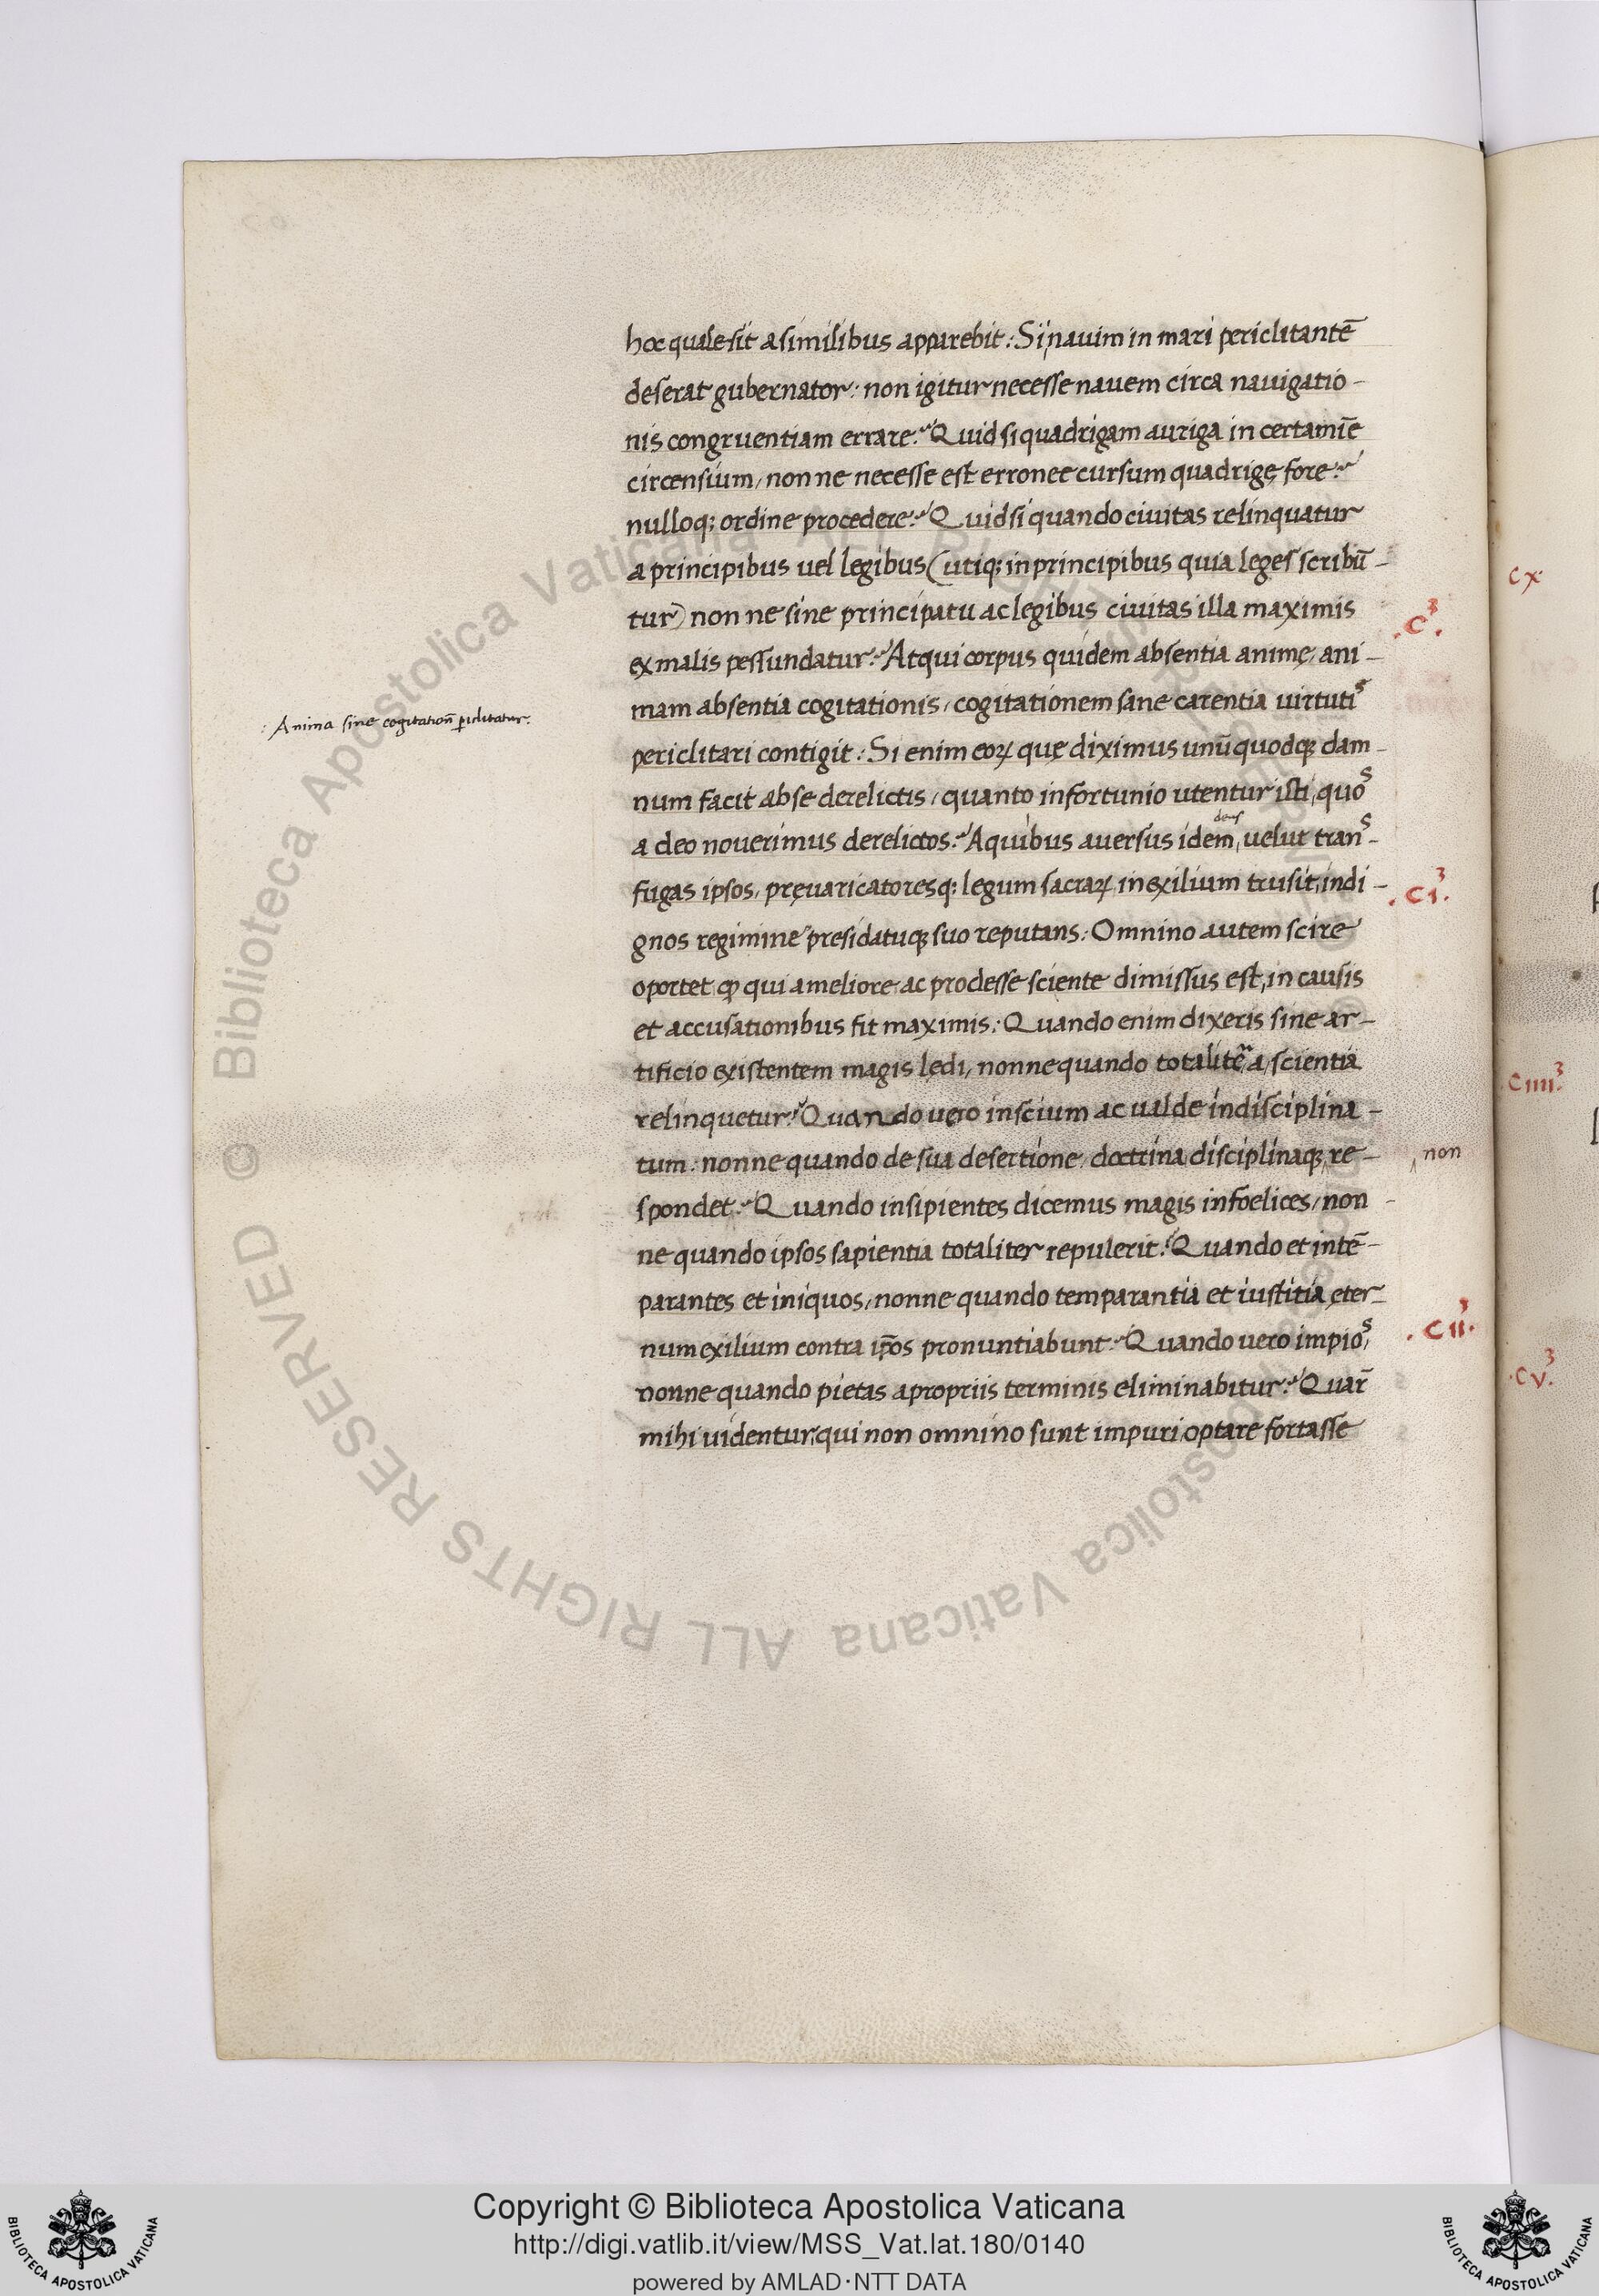 hoc quale sit a similibus apparebit: Si nauim in mari periclitantē
deserat gubernator: non igitur necesse nauem circa nauigatio-
nis congruentiam errare? Quid si quadrigam auriga in certamīe
circensium, non ne necesse est erronee cursum quadrigę fore?
nulloq; ordine procedere? Quid si quando ciuitas relinquatur
a principibus uel legibus (utiq; in principibus quia leges scribū-
tur) non ne sine principatu ac legibus ciuitas illa maximis
.C³.
ex malis pessundatur? Atqui corpus quidem absentia animę, ani-
mam absentia cogitationis, cogitationem sane carentia uirtutis
: Anima sine cogitatioñ ꝑiclitatur.
periclitari contigit: Si enim eoꝝ quę diximus unūquodqꝫ dam-
num facit ab se derelictis, quanto infortunio utentur isti, quos
a deo nouerimus derelictos? A quibus auersus idem deus, uelut trans-
fugas ipsos, pręuaricatoresq; legum sacraꝝ, in exilium trusit, indi-
.Ci³.
gnos regimine presidatuqꝫ suo reputans: Omnino autem scire
oportet ꝙ qui a meliore ac prodesse sciente dimissus est, in causis
et accusationibus fit maximis: Quando enim dixeris sine ar-
tificio existentem magis lędi, nonne quando totaliter a scientia
relinquetur? Quando uero inscium ac ualde indisciplina-
tum: nonne quando de sua desertione, doctrina disciplinaqꝫ re-
non
spondet? Quando insipientes dicemus magis infoelices, non-
ne quando ipsos sapientia totaliter repulerit? Quando et intē-
parantes et iniquos, nonne quando temparantia et iustitia ęter-
num exilium contra ip̄os pronuntiabunt? Quando uero impios,
.Cii³.
nonne quando pietas a propriis terminis eliminabitur? Quar̄
mihi uidentur, qui non omnino sunt impuri, optare fortasse
cx
Ciiii³.
.Cv³.
© Biblioteca Apostolica Vaticana ALL RIGHTS RESERVED © Biblioteca Apostolica Vaticana ALL RIGHTS RESERVED
Copyright © Biblioteca Apostolica Vaticana
http://digi.vatlib.it/view/MSS_Vat.lat.180/0140
powered by AMLAD·NTT DATA
BIBLIOTECA APOSTOLICA VATICANA
BIBLIOTECA APOSTOLICA VATICANA